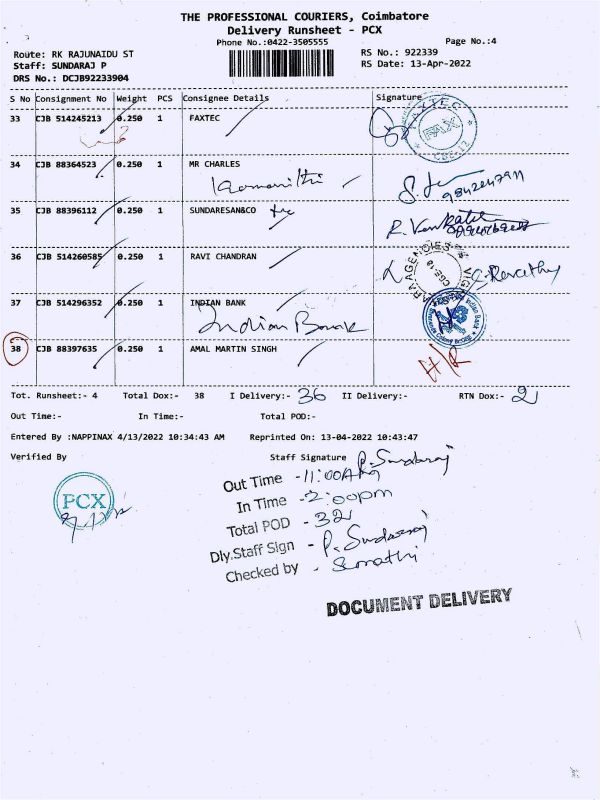 THE PROFESSIONAL COURIERS, Coimbatore
Delivery Runsheet - PCX
Phone No.:0422-3505555
Page No.:4
Route: RK RAJUNAIDU ST
RS No.: 922339
Staff: SUNDARAJ P
RS Date: 13-Apr-2022
DRS No.: DCJB92233904
S No Consignment No Weight PCS Consignee Details Signature
33 CJB 514245213 0.250 1 FAXTEC
FAXTEC FAX CBE-12
34 CJB 88364523 0.250 1 MR CHARLES
35 CJB 88396112 0.250 1 SUNDARESAN&CO
36 CJB 514260585 0.250 1 RAVI CHANDRAN
AGENCIES CBE-18
37 CJB 514296352 0.250 1 INDIAN BANK
Indian Bank
38 CJB 88397635 0.250 1 AMAL MARTIN SINGH
Tot. Runsheet:- 4 Total Dox:- 38 I Delivery:- 36 II Delivery:- RTN Dox:- 2
Out Time:- In Time:- Total POD:-
Entered By :NAPPINAX 4/13/2022 10:34:43 AM Reprinted On: 13-04-2022 10:43:47
Verified By Staff Signature P. Sundaraj
PCX
Out Time - 11:00AM
In Time - 2:00pm
Total POD - 32
Dly.Staff Sign - P. Sundaraj
Checked by - Sumathi
DOCUMENT DELIVERY